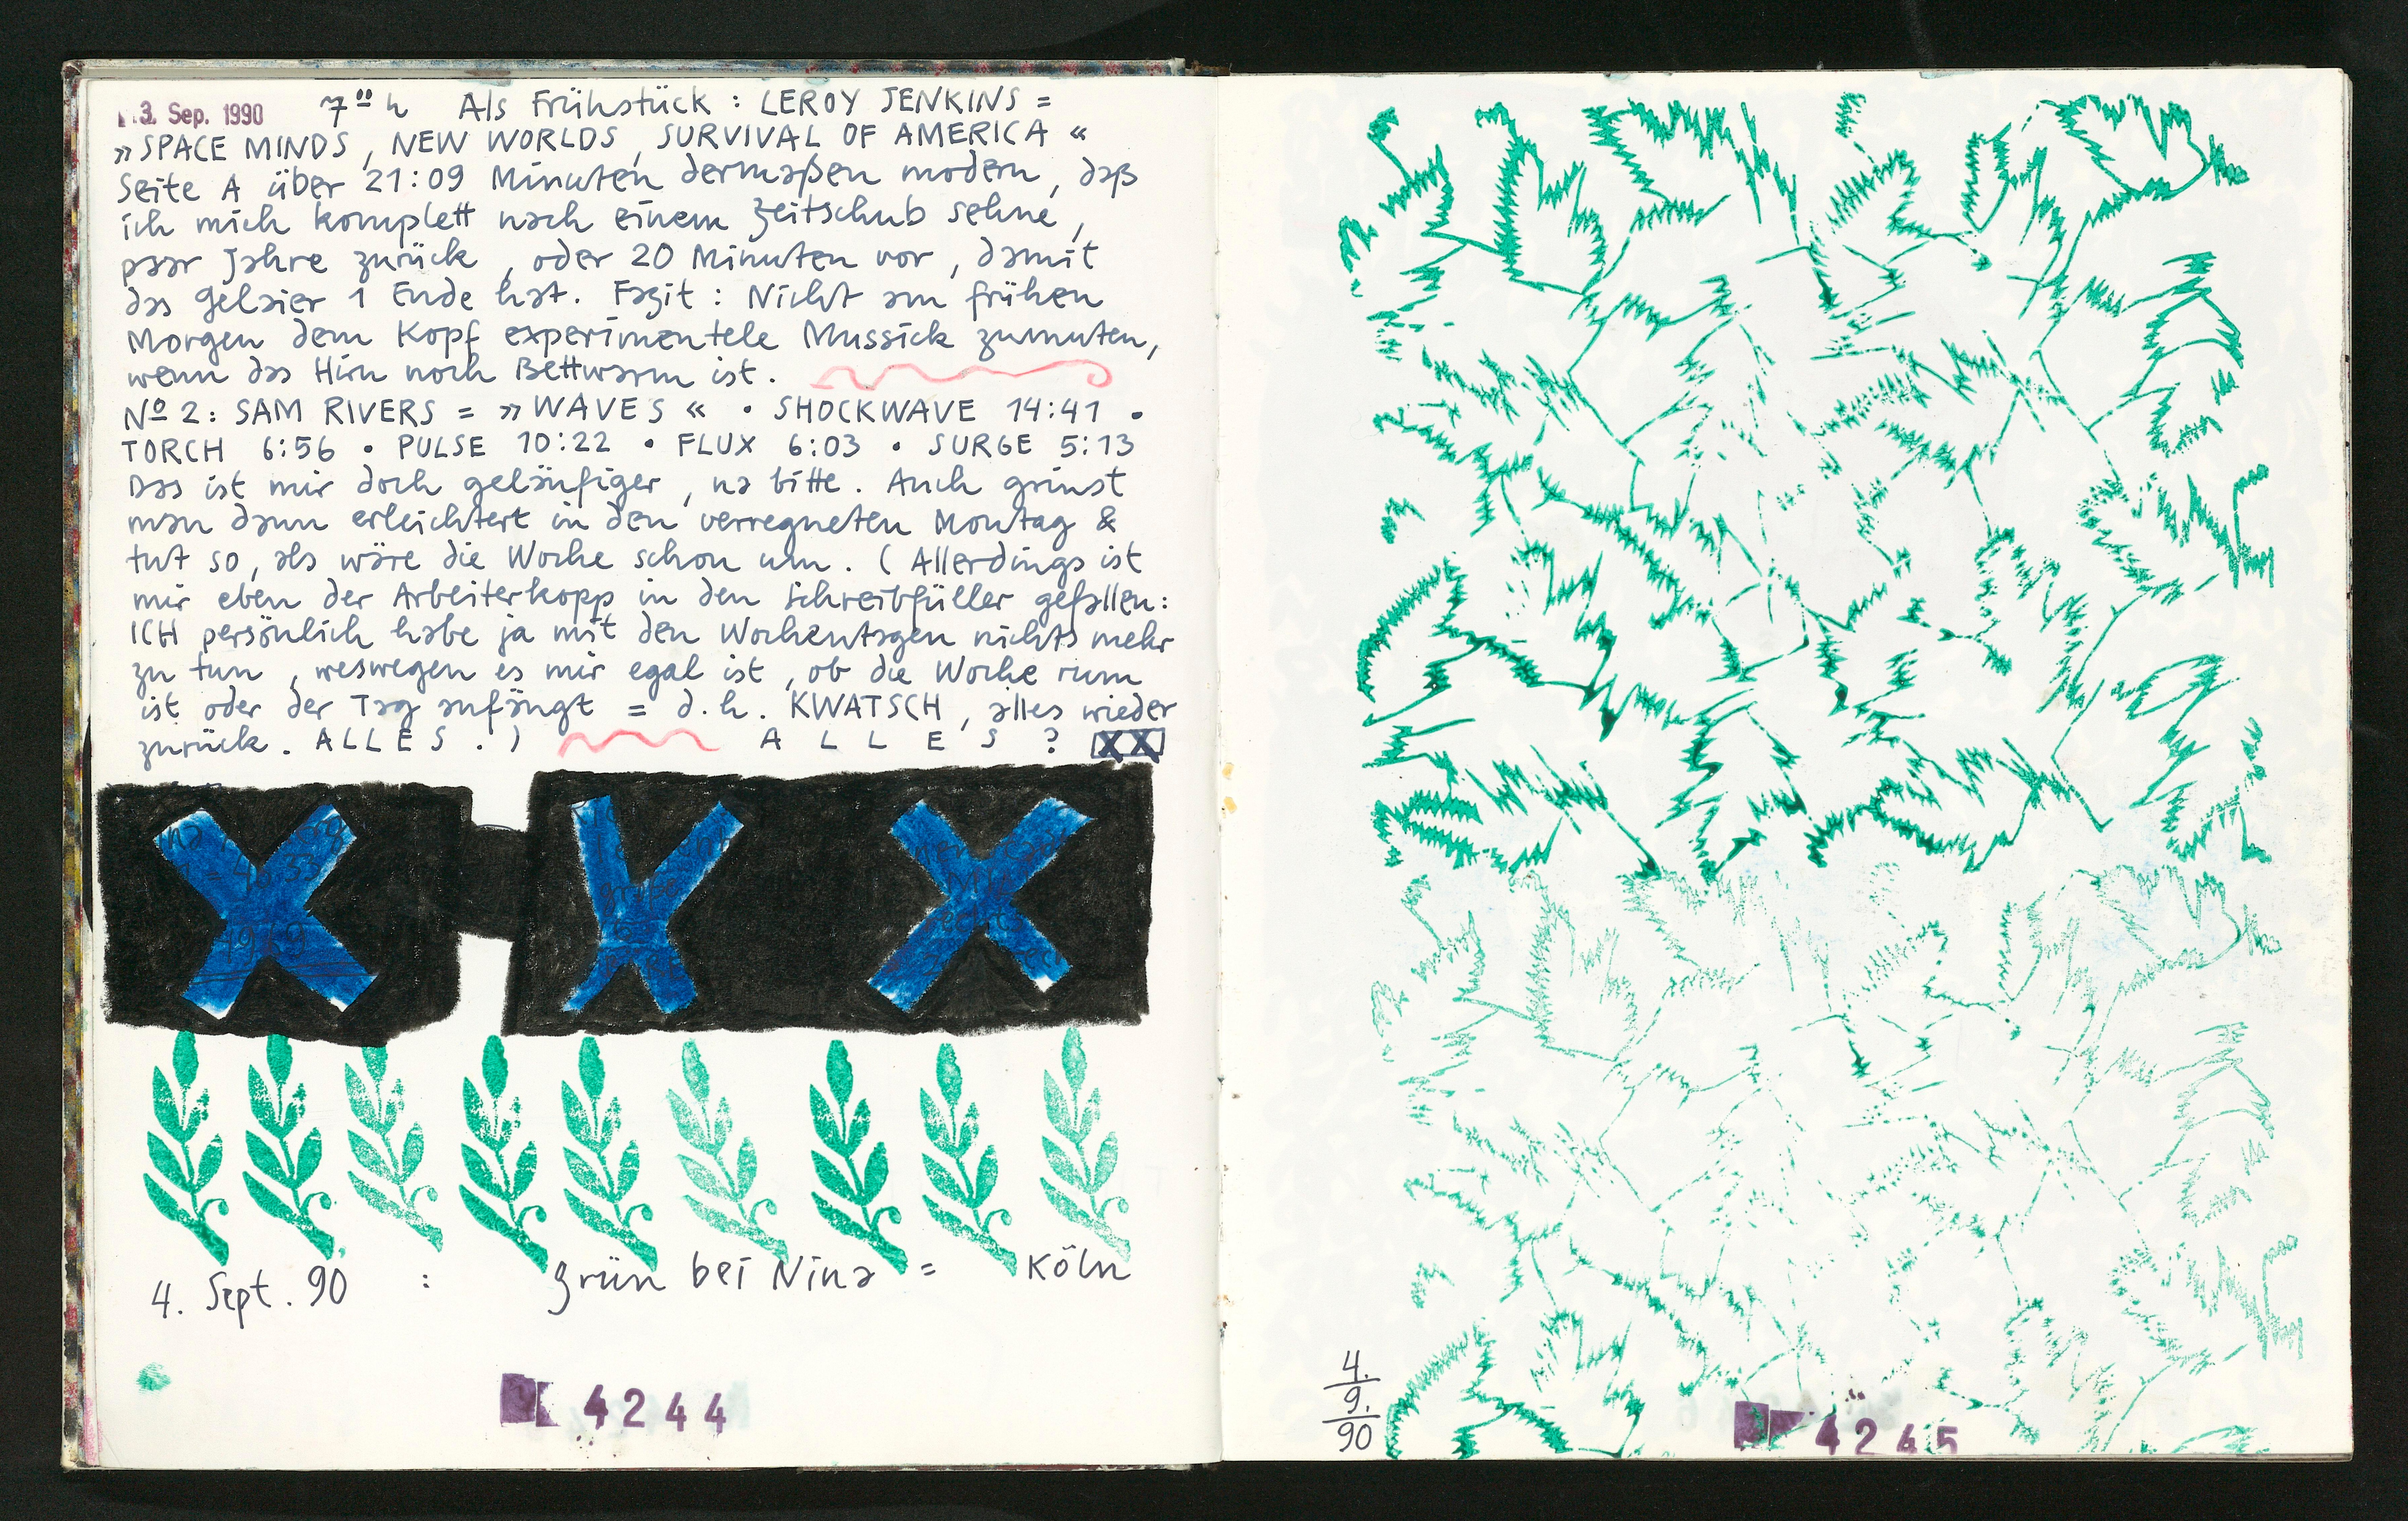 3. Sep. 1990 7⁰⁰ h Als Frühstück : LEROY JENKINS =
»SPACE MINDS, NEW WORLDS, SURVIVAL OF AMERICA«
Seite A über 21:09 Minuten dermaßen modern, daß
ich mich komplett nach einem Zeitschub sehne,
paar Jahre zurück, oder 20 Minuten vor, damit
das Gelaier 1 Ende hat. Fazit : Nicht am frühen
Morgen dem Kopf experimentele Mussick zumuten,
wenn das Hirn noch Bettwarm ist.
Nº 2: SAM RIVERS = »WAVES« • SHOCKWAVE 14:41 •
TORCH 6:56 • PULSE 10:22 • FLUX 6:03 • SURGE 5:13
Das ist mir doch geläufiger, na bitte. Auch grinst
man dann erleichtert in den verregneten Montag &
tut so, als wäre die Woche schon um. (Allerdings ist
mir eben der Arbeiterkopp in den Schreibfüller gefallen:
ICH persönlich habe ja mit den Wochentagen nichts mehr
zu tun, weswegen es mir egal ist, ob die Woche rum
ist oder der Tag anfängt = d.h. KWATSCH, alles wieder
zurück. ALLES.) A L L E S ? XX
1969
rechts
4. Sept. 90 : grün bei Nina = Köln
4244
4.
9.
90
4245